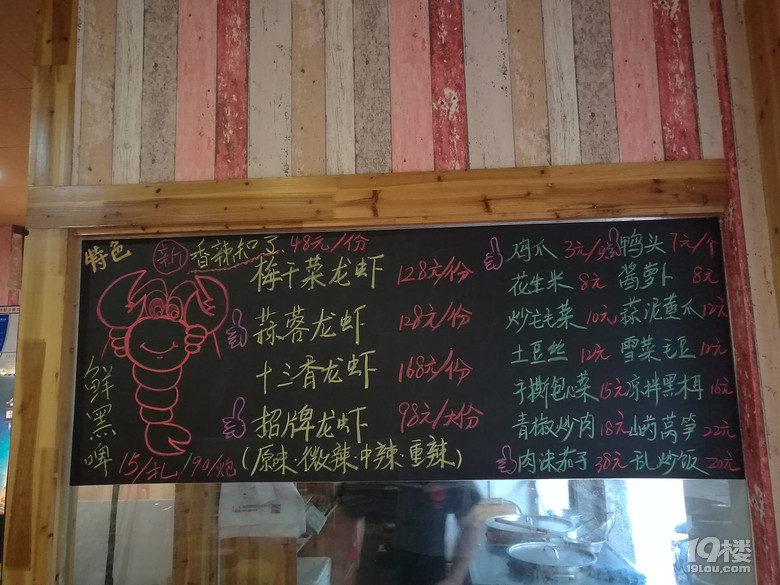 特色
新 香辣知了 48元/份
梅干菜龙虾 128元/份
蒜蓉龙虾 128元/份
十三香龙虾 168元/份
招牌龙虾 98元/大份
(原味·微辣·中辣·重辣)
鲜黑啤 15/扎 190/炮
鸡爪 3元/只 鸭头 7元/个
花生米 8元 酱萝卜 8元
炒毛毛菜 10元 蒜泥黄瓜 12元
土豆丝 12元 雪菜毛豆
手撕包心菜 15元 凉拌黑木耳
青椒炒肉 18元 山药莴笋 22元
肉沫茄子 38元 乱炒饭 20元
19楼
19lou.com